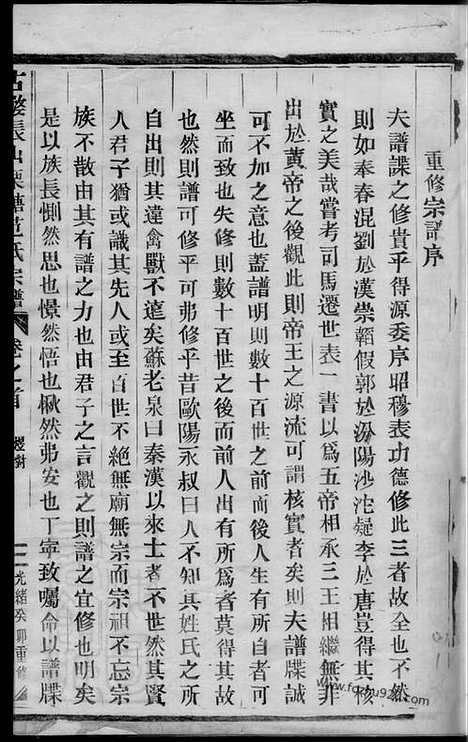 重修宗譜序
夫譜諜之修貴乎得源委序昭穆表功德修此三者故全也不然
則如奉春混劉於漢崇韜假郭於汾陽沙沱疑李於唐豈得其核
實之美哉嘗考司馬遷世表一書以爲五帝相承三王相繼無非
出於黄帝之後觀此則帝王之源流可謂核實者矣則夫譜牒誠
可不加之意也蓋譜明則數十百世而前而後人生有所自來可
坐而致也失修則數十百世之後而前人有所爲者莫得其故
也然則譜可修平可弗修乎昔歐陽永叔曰人不知其姓氏之所
自出則其違禽獸不遠矣蘇老泉曰秦漢以來士者不世然其賢
人君子猶或識其先人或至百世不絶無廟無宗而宗祖不忘宗
族不散由其有譜之力也由君子之言觀之則譜之宜修也明矣
是以族長惻然思也憬然悟也楸然弗安也丁寧致囑命以譜牒
古婺長山栗塘范氏宗譜 卷之首
光緒癸卯重修
www.fookpu92.com